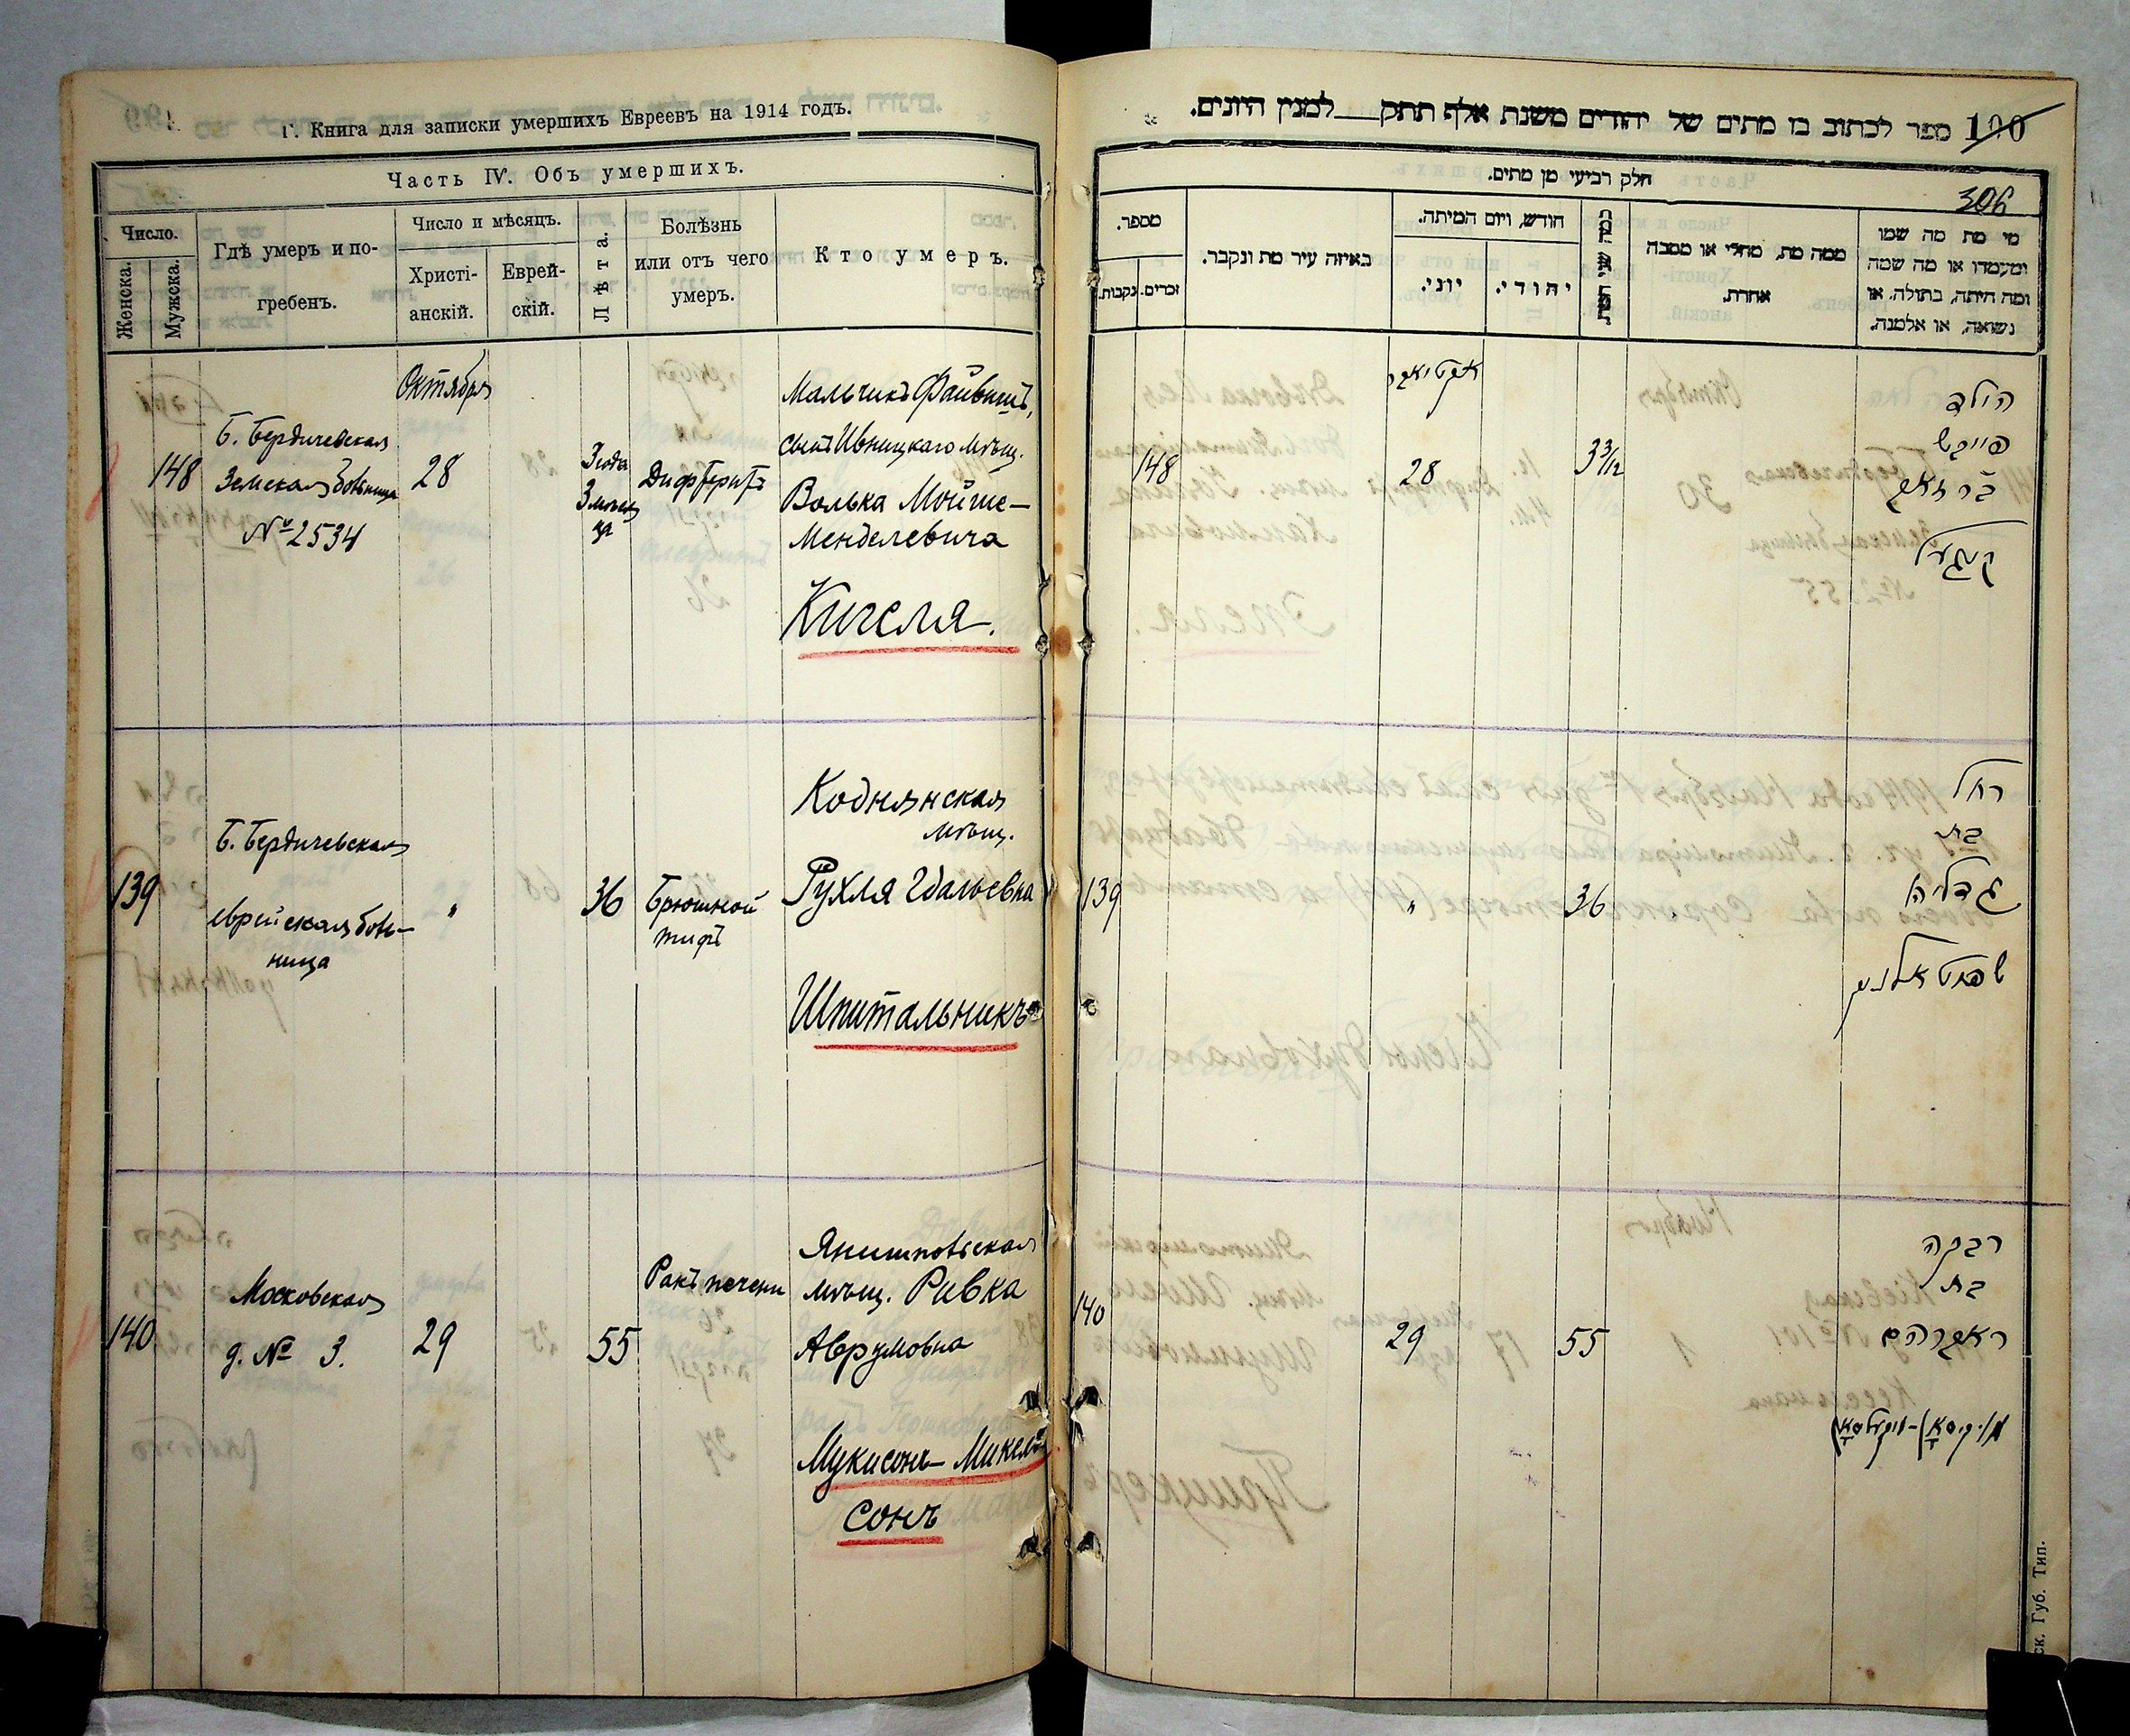 Г. Книга для записки умершихъ Евреевъ на 1914 годъ.
Часть IV. Объ умершихъ.
Число.
Женска.
Мужска.
Гдѣ умеръ и по-
гребенъ.
Число и мѣсяцъ.
Христі-
анскій.
Еврей-
скій.
Лѣта.
Болѣзнь
или отъ чего
умеръ.
Кто умеръ.
Октября
148
Б. Бердичевская
Земская больница
№ 2534
28
3 года
3 мѣся
ца
Дифтеритъ
Мальчикъ Файвишъ,
сынъ Ивницкаго мѣщ.
Волька Мойше-
Менделевича
Кигеля.
139
Б. Бердичевская
еврейская боль-
ница
"
36
Брюшной
тифъ
Коднянская
мѣщ.
Рухля Гдальевна
Шпитальникъ
140
Московская
д. № 3.
29
55
Ракъ печени
Янишпольская
мѣщ. Ривка
Аврумовна
Мукисонъ-Микель
сонъ
100 ספר לכתוב בו מתים של יהודים משנת אלף תתק למנין היונים.
306
חלק רביעי מן מתים.
מספר.
נקבות.
זכרים.
באיזה עיר מת ונקבר.
חודש, ויום המיתה.
יוני.
יהודי.
ממה מת, מחלי או מסבה
אחרת.
מי מת מה שמו
ומעמדו או מה שמה
ומה היתה, בתולה, או
נשואה, או אלמנה.
148
28
3 3/12
הילד
פייוויש
קיגעל
139
"
36
רחל
בת
גדליה
שפיטאלניק
140
29
55
רבקה
בת
ר אברהם
ск. Губ. Тип.